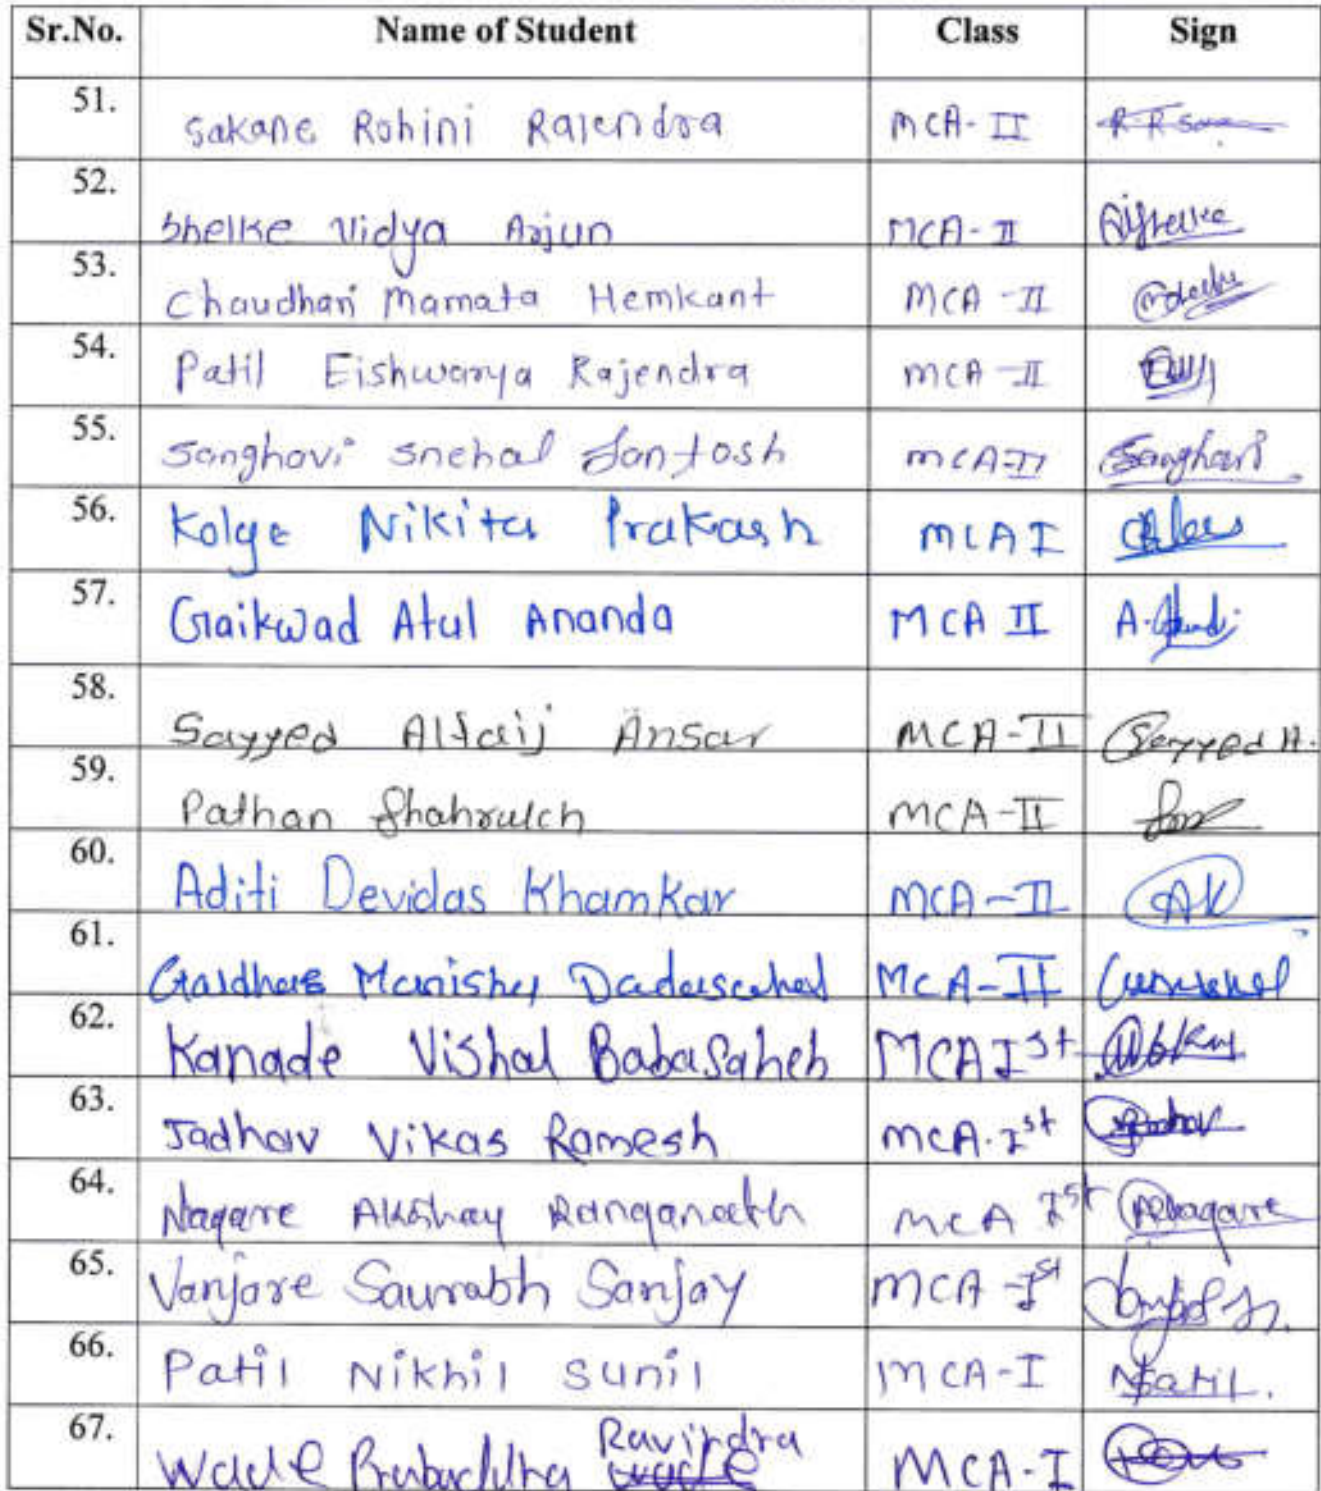 Sr.No. Name of Student Class Sign
51. Sakane Rohini Rajendra MCA-II
52. Shelke Vidya Arjun MCA-II
53. Chaudhari Mamata Hemkant MCA-II
54. Patil Eishwarya Rajendra MCA-II
55. Sanghavi Snehal Santosh MCA-II Sanghavi
56. Kolge Nikita Prakash MCA I
57. Gaikwad Atul Ananda MCA II
58. Sayyed Altaij Ansar MCA-II Sayyed A.
59. Pathan Shahrukh MCA-II
60. Aditi Devidas Khamkar MCA-II AK
61. Manisha Dadasaheb MCA-II
62. Kanade Vishal Babasaheb MCA Ist
63. Jadhav Vikas Ramesh MCA-Ist
64. Nagare Akshay Ranganath MCA Ist ANagare
65. Vanjare Saurabh Sanjay MCA-Ist
66. Patil Nikhil Sunil MCA-I NSPatil.
67. Ravindra
Wade MCA-I